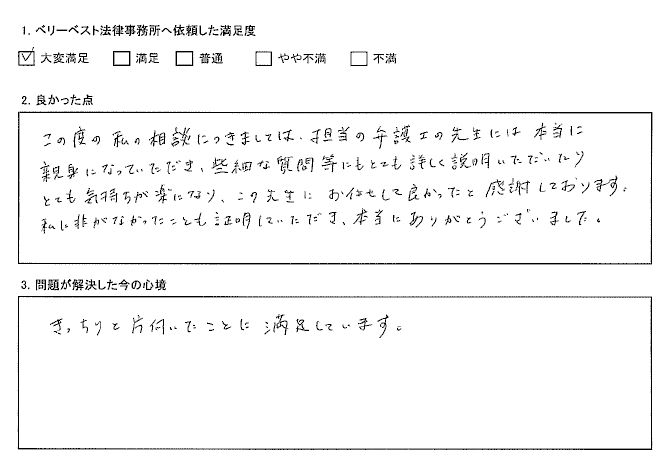 1. ベリーベスト法律事務所へ依頼した満足度
☑ 大変満足 □ 満足 □ 普通 □ やや不満 □ 不満
2. 良かった点
この度の私の相談につきましては、担当の弁護士の先生には本当に
親身になっていただき、些細な質問等にもとても詳しく説明いただいたり
とても気持ちが楽になり、この先生にお任せして良かったと感謝しております。
私に非がなかったことも証明していただき、本当にありがとうございました。
3. 問題が解決した今の心境
きっちりと片付いたことに満足しています。